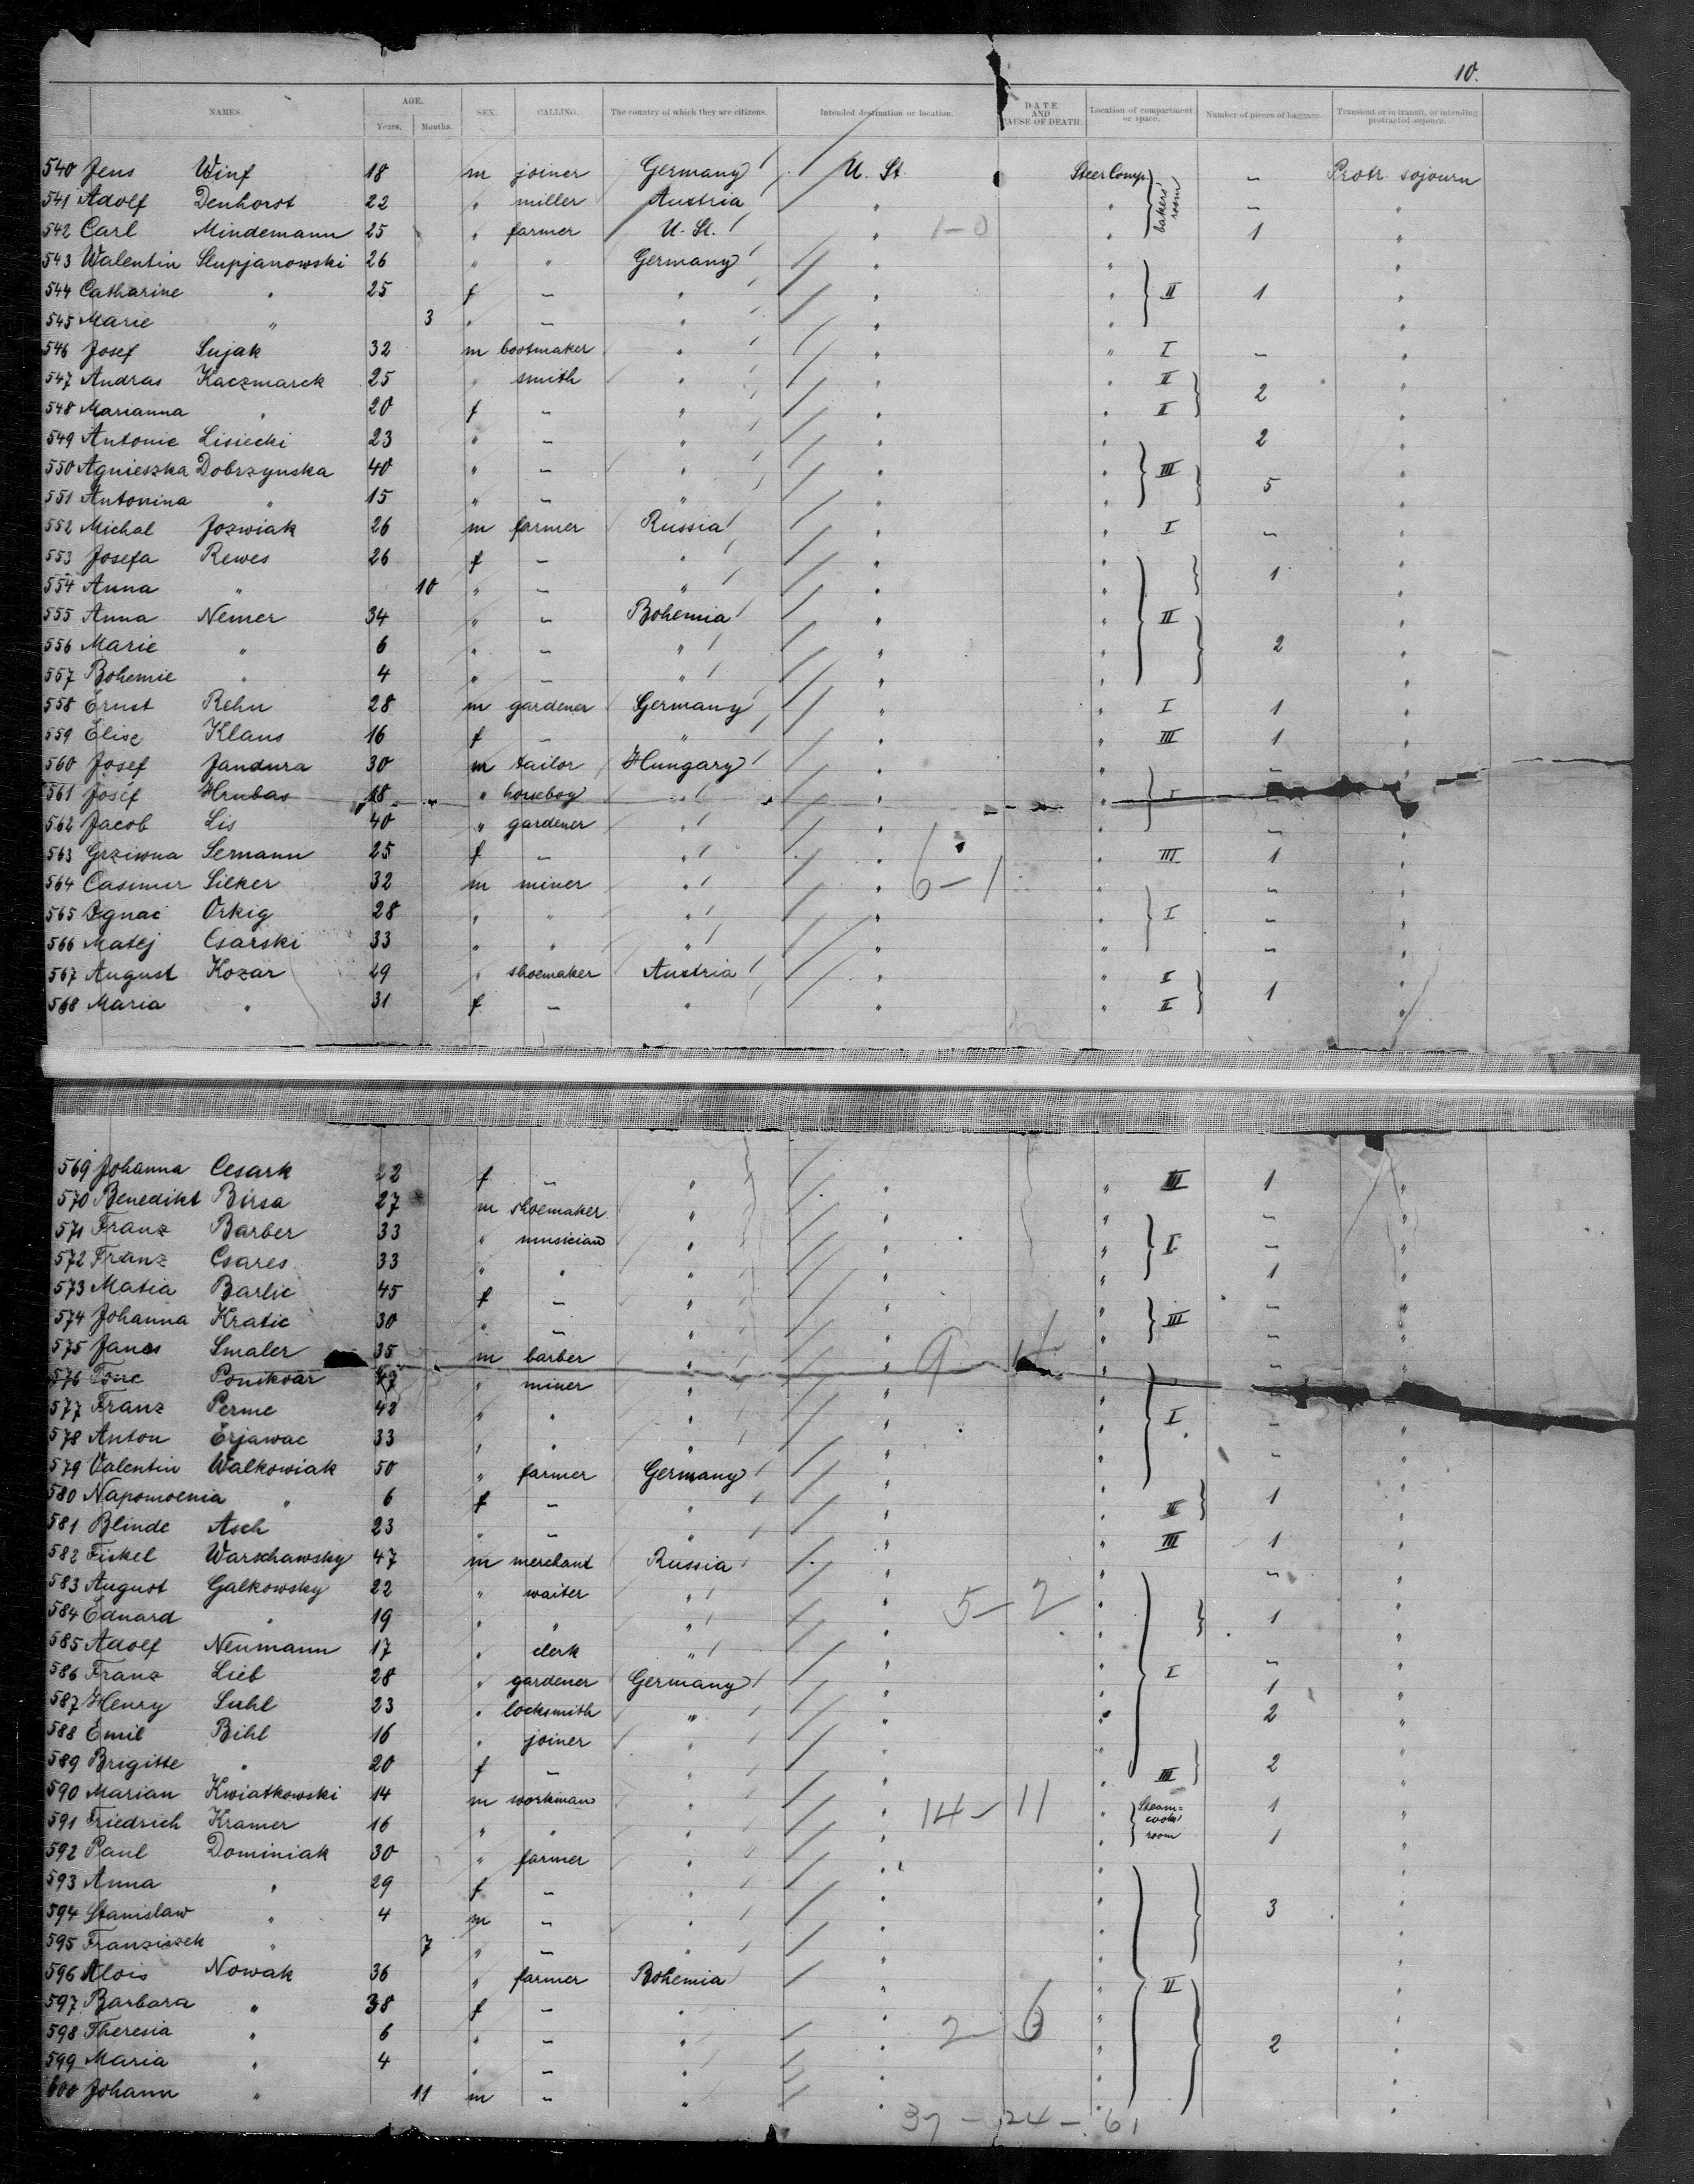 10.
NAMES. AGE. Years. Months. SEX. CALLING. The country of which they are citizens. Intended destination or location. DATE AND CAUSE OF DEATH. Location of compartment or space. Number of pieces of baggage. Transient or in transit, or intending protracted sojourn.
540 Jens Winf 18 m joiner Germany U. St. Steer Comp. bakers' room – Protr sojourn
541 Adolf Denhorst 22 " miller Austria " " – "
542 Carl Mindemann 25 " farmer U. St. " 1–0 " 1 "
543 Walentin Slupjanowski 26 " " Germany " " "
544 Catharine " 25 f – " " " II 1 "
545 Marie " 3 " – " " " "
546 Josef Sujak 32 m bootmaker " " " I – "
547 Andras Kaczmarek 25 " smith " " " II 2 "
548 Marianna " 20 f – " " " II "
549 Antonie Lisiecki 23 " – " " " 2 "
550 Agnieszka Dobrzynska 40 " – " " " III 5 "
551 Antonina " 15 " – " " " "
552 Michal Jozwiak 26 m farmer Russia " " I – "
553 Josefa Rewes 26 f – " " " 1 "
554 Anna " 10 " – " " " "
555 Anna Nemer 34 " – Bohemia " " II "
556 Marie " 6 " – " " " 2 "
557 Bohemie " 4 " – " " " "
558 Ernst Rehn 28 m gardener Germany " " I 1 "
559 Elise Klaus 16 f – " " " III 1 "
560 Josef Jandura 30 m tailor Hungary " " – "
561 Josef Hrubas 18 " horseboy " " " I "
562 Jacob Lis 40 " gardener " " " – "
563 Grziwna Semann 25 f – " " " III 1 "
564 Casimir Silker 32 m miner " " 6–1 " – "
565 Ignac Orkig 28 " " " " " I – "
566 Matej Csarski 33 " " " " " – "
567 August Kozar 29 " shoemaker Austria " " I 1 "
568 Maria " 31 f – " " " II "
569 Johanna Cesark 22 f – " " " III 1 "
570 Benedikt Birsa 27 m shoemaker " " " – "
571 Franz Barber 33 " musician " " " I – "
572 Franz Csares 33 " " " " " 1 "
573 Matia Barlic 45 f – " " " – "
574 Johanna Kratic 30 " – " " " III – "
575 Janes Smaler 35 m barber " " 9–14 – "
576 Tone Ponikvar 47 " miner " " " "
577 Franz Perme 42 " " " " " I – "
578 Anton Erjawac 33 " " " " " – "
579 Valentin Walkowiak 50 " farmer Germany " " "
580 Napomoenia " 6 f – " " " II 1 "
581 Blinde Asch 23 " – " " " III 1 "
582 Fiskel Warschawsky 47 m merchant Russia " " – "
583 August Galkowsky 22 " waiter " " 5–2 " "
584 Eduard " 19 " " " " " 1 "
585 Adolf Neumann 17 " clerk " " " – "
586 Franz Lieb 28 " gardener Germany " " I 1 "
587 Henry Suhl 23 " locksmith " " " 2 "
588 Emil Bihl 16 " joiner " " " "
589 Brigitte " 20 f – " " " III 2 "
590 Marian Kwiatkowski 14 m workman " " 14–11 " Steam= cooks' room 1 "
591 Friedrich Kramer 16 " " " " " 1 "
592 Paul Dominiak 30 " farmer " " " "
593 Anna " 29 f – " " " "
594 Stanislaw " 4 m – " " " 3 "
595 Franziszek " 7 " – " " " "
596 Alois Nowak 36 " farmer Bohemia " " II "
597 Barbara " 38 f – " " " "
598 Theresia " 6 " – " " 2–6 " 2 "
599 Maria " 4 " – " " " "
600 Johann " 11 m – " " " "
37–24–61